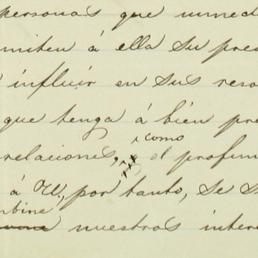 personas que inmed
miten á ella su pres
influir en sus reso
que tenga á bien pre
relaciones, como el profun
á W, por tanto, se s
nuestros intere